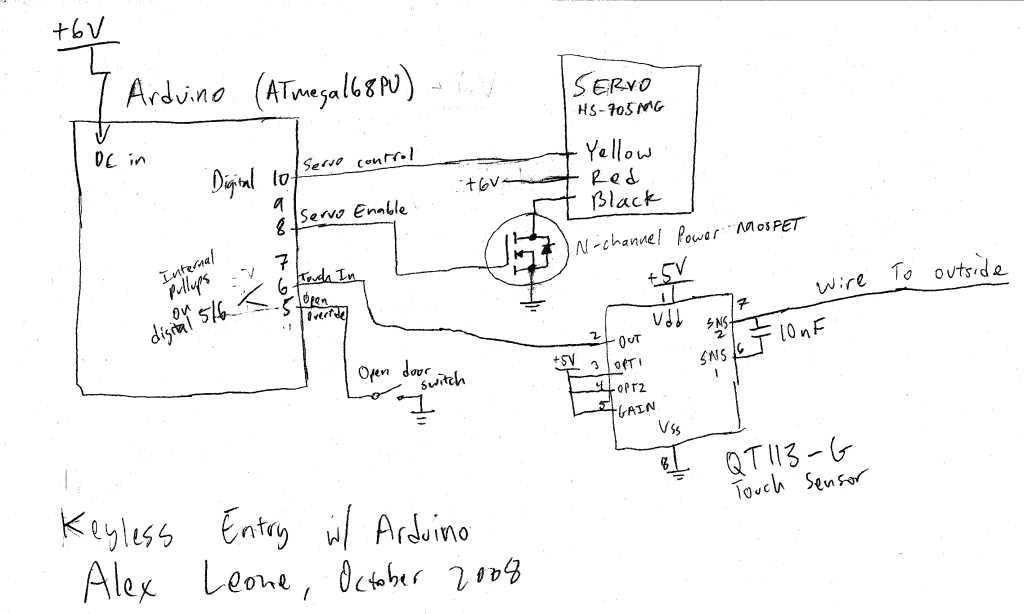 +6V
Arduino (ATmega168PU)
DC in
Digital 10
9
8
7
6
5
Servo control
Servo Enable
Touch In
Open
Override
Internal
pullups
on
digital 5/6
Open door
switch
SERVO
HS-705MG
Yellow
Red
Black
+6V
N-channel Power MOSFET
+5V
1
Vdd
7
SNS
2
SNS 6
1
10nF
Wire To outside
2
OUT
+5V
3 OPT1
4 OPT2
5 GAIN
Vss
8
QT113-G
Touch Sensor
Keyless Entry w/ Arduino
Alex Leone, October 2008